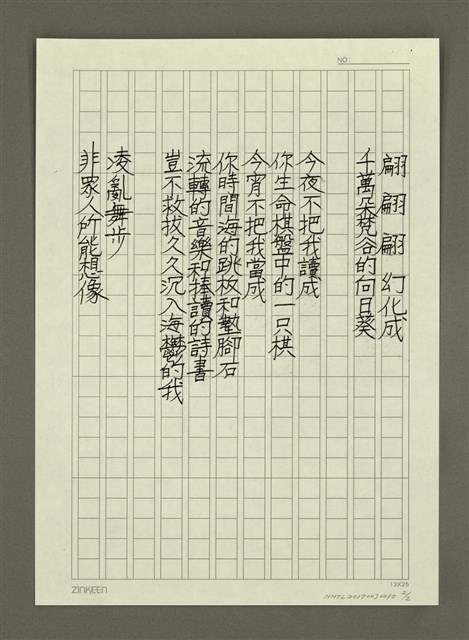 NO:
翩翩翩幻化成
千萬朵梵谷的向日葵
今夜不把我讀成
你生命棋盤中的一只棋
今宵不把我當成
你時間海的跳板和墊腳石
流轉的音樂和捧讀的詩書
豈不救拔久久沉入海鬱的我
凌亂舞步
非眾人所能想像
ZINKEEN
12X25